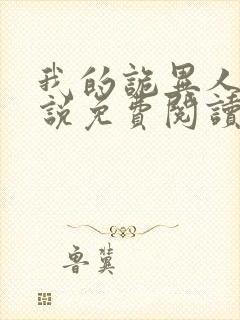 我的詭異人
說免費閱讀
魯冀